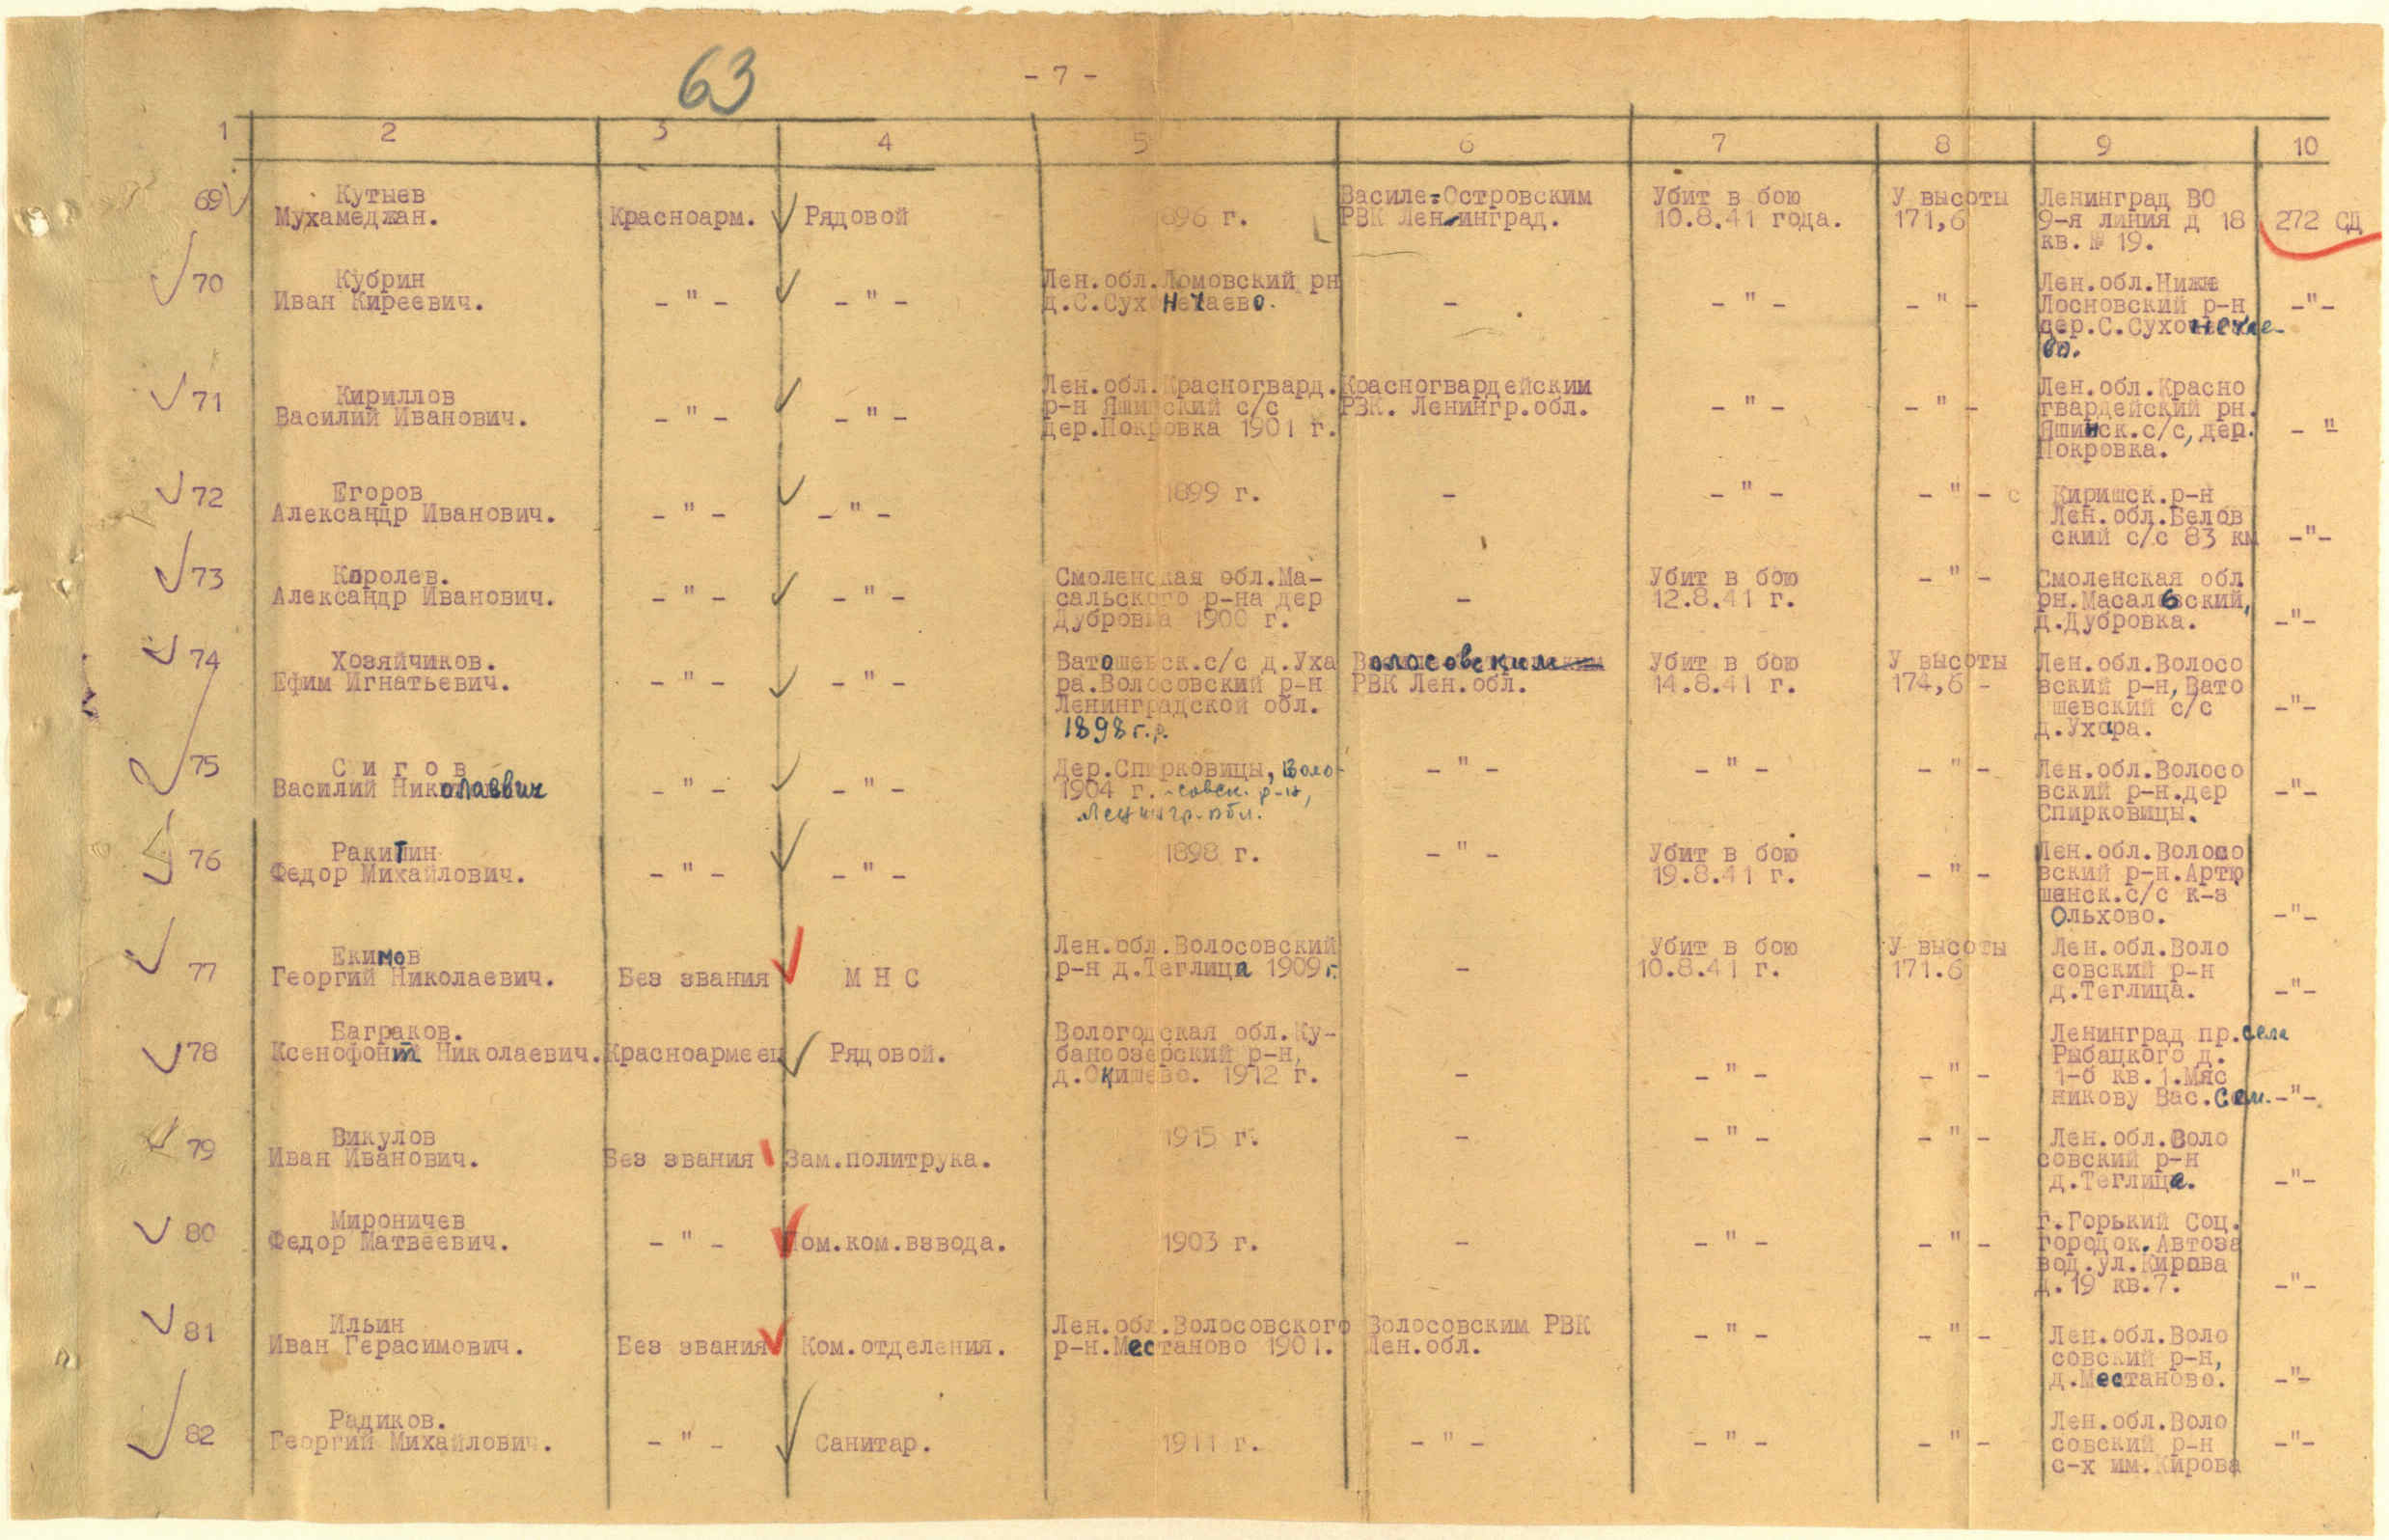 63
- 7 -
1 2 3 4 5 6 7 8 9 10
69 Кутыев Василе-Островским Убит в бою У высоты Ленинград ВО
Мухамеджан. Красноарм. Рядовой 1896 г. РВК Ленинград. 10.8.41 года. 171,6 9-я линия д 18 272 СД
кв.№ 19.
70 Кубрин Лен.обл.Ломовский рн Лен.обл.Нижне
Иван Киреевич. - " - - " - д.С.Сухонечаево. - - " - - " - Лосновский р-н -"-
дер.С.Сухонечае-
во.
71 Кириллов Лен.обл.Красногвард. Красногвардейским Лен.обл.Красно
Василий Иванович. - " - - " - р-н Яшинский с/с РВК. Ленингр.обл. - " - - " - гвардейский рн.
дер.Покровка 1901 г. Яшинск.с/с,дер. - "
Покровка.
72 Егоров 1899 г. - - " - - " - с Киришск.р-н
Александр Иванович. - " - - " - Лен.обл.Белов
ский с/с 83 км -"-
73 Королев. Смоленская обл.Ма- Убит в бою - " - Смоленская обл
Александр Иванович. - " - - " - сальского р-на дер - 12.8.41 г. рн.Масальский,
Дубровка 1900 г. д.Дубровка. -"-
74 Хозяйчиков. Ватошевск.с/с д.Уха Волосовским Убит в бою У высоты Лен.обл.Волосо
Ефим Игнатьевич. - " - - " - ра.Волосовский р-н РВК Лен.обл. 14.8.41 г. 174,6 - вский р-н,Вато
Ленинградской обл. шевский с/с -"-
1898 г.р. д.Ухара.
75 С и г о в Дер.Спирковицы, Воло- - " - - " - - " - Лен.обл.Волосо
Василий Николаевич - " - - " - 1904 г. -совск. р-н, вский р-н.дер -"-
Ленингр. обл. Спирковицы.
76 Ракитин 1898 г. - " - Убит в бою Лен.обл.Волосо
Федор Михайлович. - " - - " - 19.8.41 г. - " - вский р-н.Артю
шенск.с/с к-з
Ольхово. -"-
77 Екимов Лен.обл.Волосовский Убит в бою У высоты Лен.обл.Воло
Георгий Николаевич. Без звания М Н С р-н д.Теглица 1909 г. - 10.8.41 г. 171.6 совский р-н
д.Теглица. -"-
78 Баграков. Вологодская обл.Ку- Ленинград пр.села
Ксенофонт Николаевич. Красноармеец Рядовой. баноозерский р-н, Рыбацкого д.
д.Окишево. 1912 г. - - " - - " - 1-б кв.1.Мяс
никову Вас.Сем. -"-
79 Викулов 1915 г. - - " - - " - Лен.обл.Воло
Иван Иванович. Без звания Зам.политрука. совский р-н
д.Теглица. -"-
80 Мироничев г.Горький Соц.
Федор Матвеевич. - " - Пом.ком.взвода. 1903 г. - - " - - " - городок.Автоза
вод.ул.Кирова
д.19 кв.7. -"-
81 Ильин Лен.обл.Волосовского Волосовским РВК - " - - " - Лен.обл.Воло
Иван Герасимович. Без звания Ком.отделения. р-н.Местаново 1901. Лен.обл. совский р-н,
д.Местаново. -"-
82 Радиков. Лен.обл.Воло
Георгий Михайлович. - " - Санитар. 1911 г. - " - - " - - " - совский р-н -"-
с-х им.Кирова